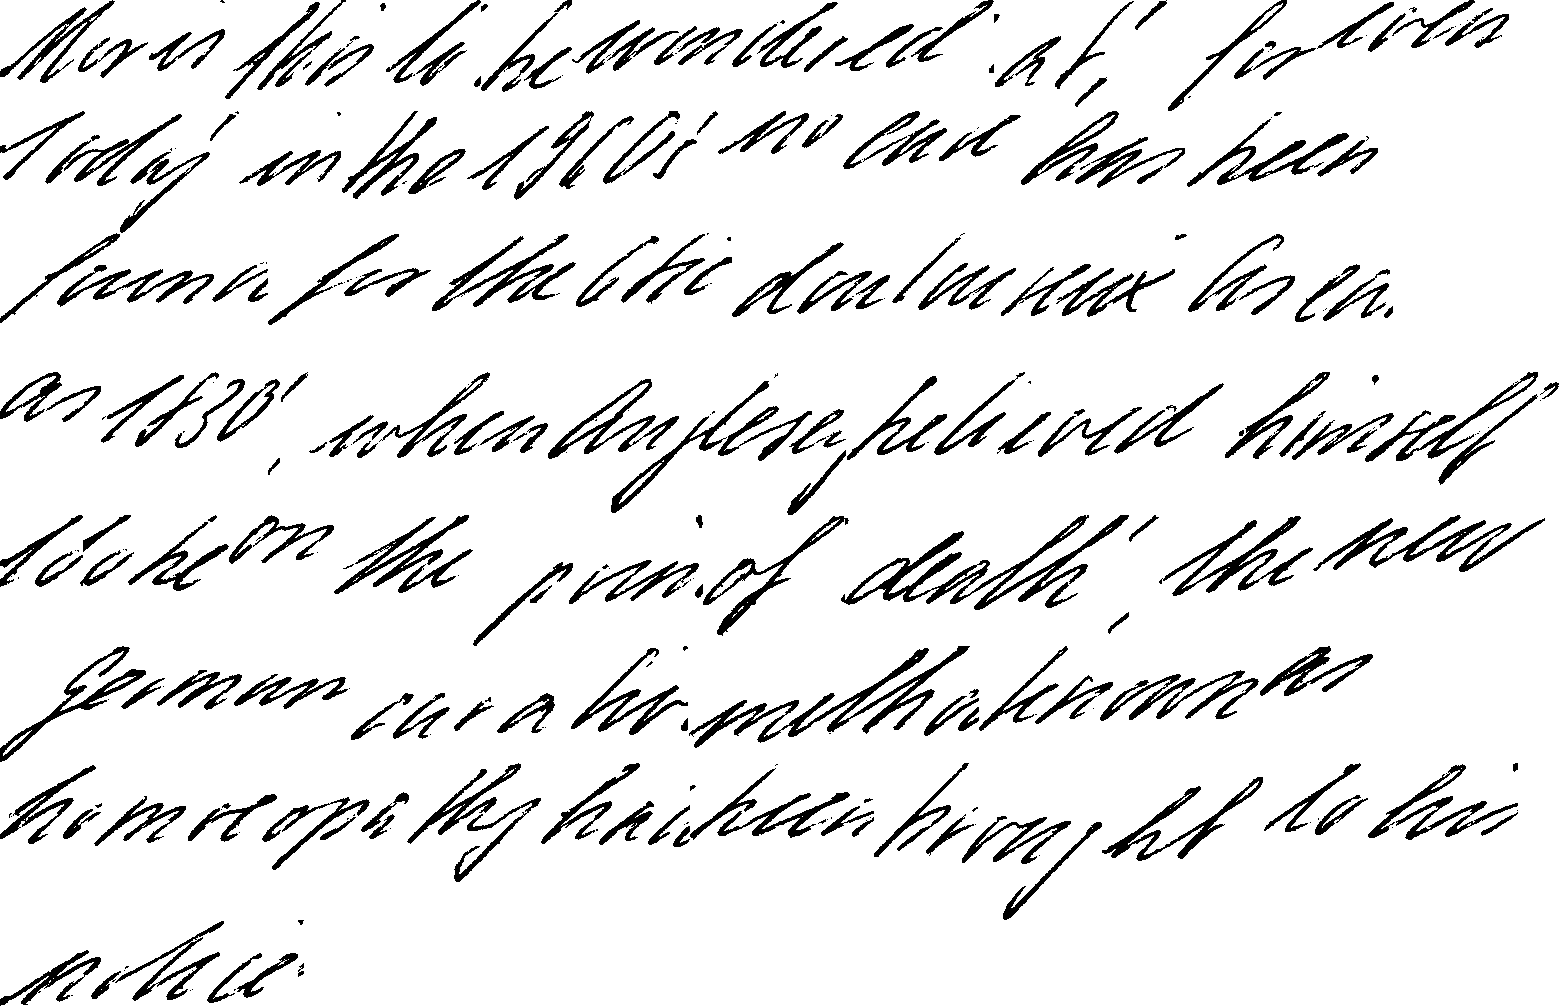 Nor is this to be wondered at, for even
today in the 1960's no end has been
found for the tic douloureux
as 1830, when Anglesey believed himself
to be on the point of death, the new
German curative method known as
homoeopathy had been brought to his
notice.